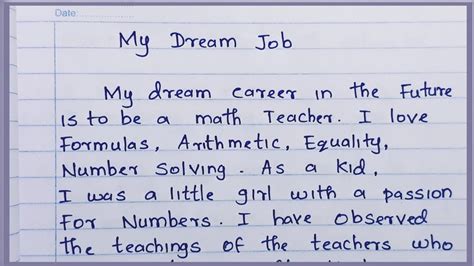 Date:
My Dream Job
My dream career in the Future
is to be a math Teacher. I love
Formulas, Arithmetic, Equality,
Number Solving. As a kid,
I was a little girl with a passion
For Numbers. I have observed
the teachings of the teachers who